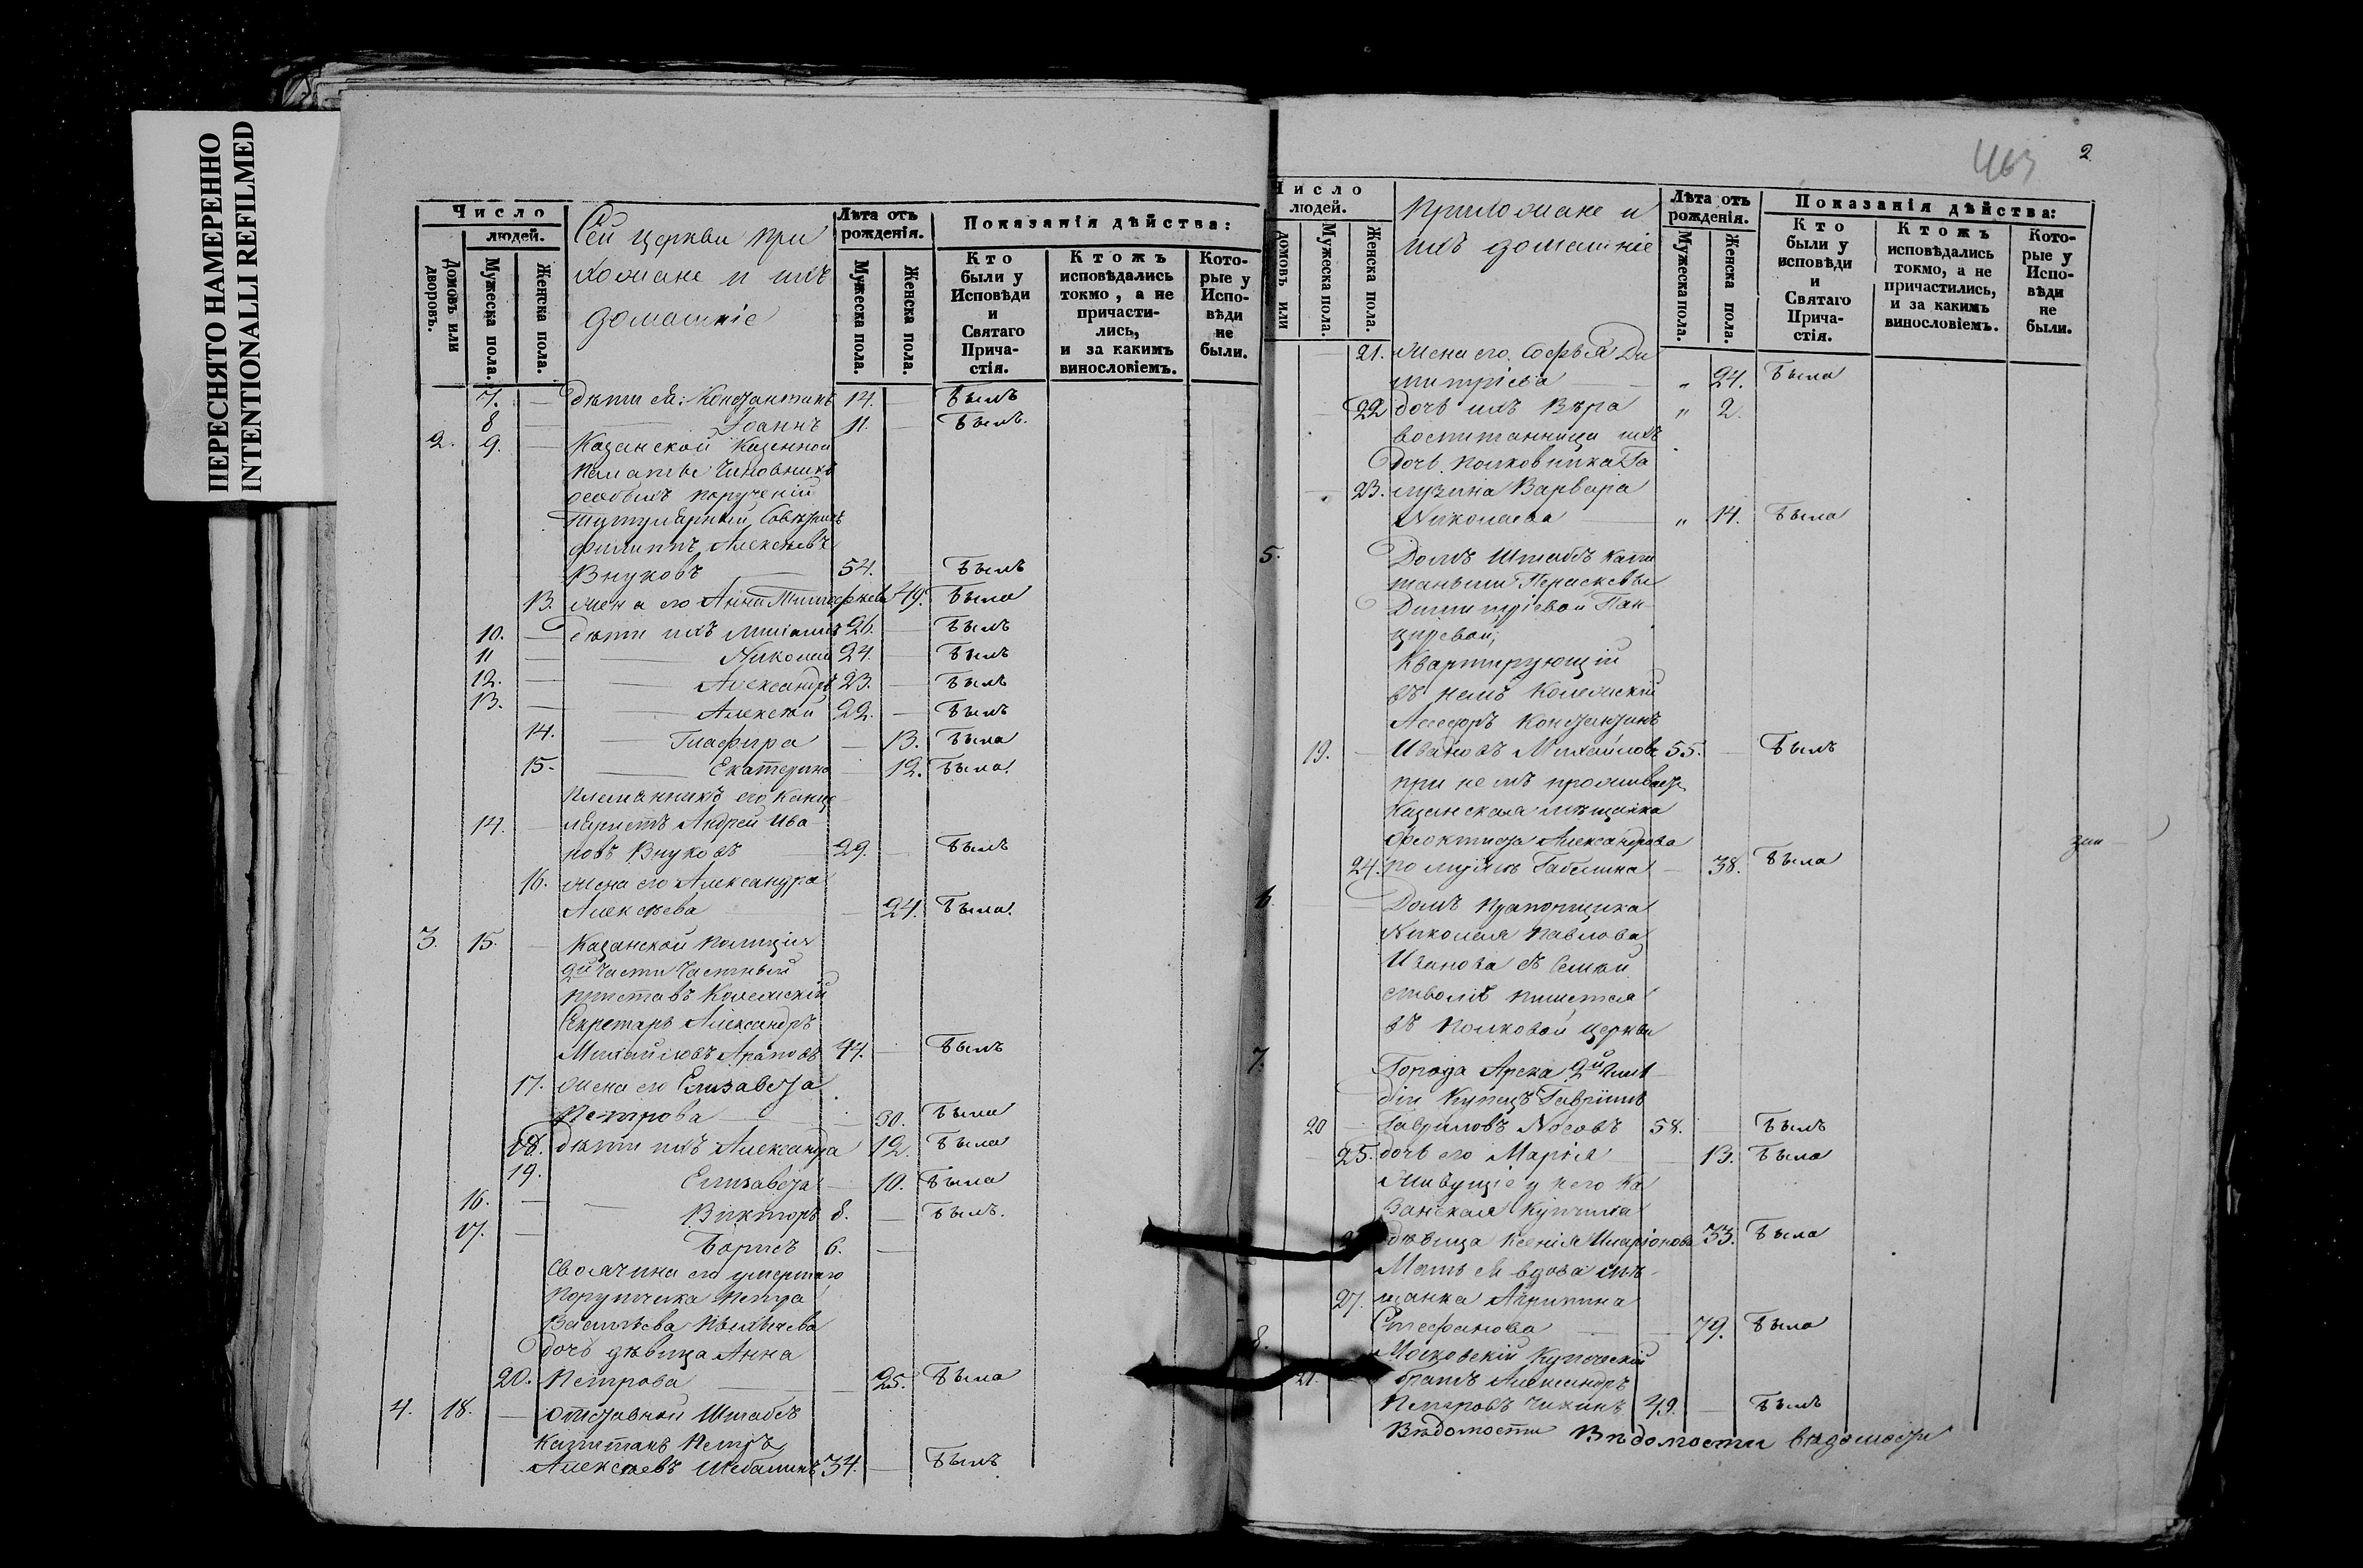 ПЕРЕСНЯТО НАМЕРЕННО
INTENTIONALLI REFILMED
Число
людей.
Домовъ или дворовъ.
Мужеска пола.
Женска пола.
Сей церкви при
хожане и ихъ
домашніе
Лѣта отъ рожденія.
Мужеска пола.
Женска пола.
Показанія дѣйства:
Кто были у Исповѣди и Святаго Прича-стія.
Ктожъ исповѣдались токмо, а не причасти-лись, и за какимъ винословіемъ.
Кото-рые у Испо-вѣди не были.
7. — дѣти ея: Константинъ 14. — Былъ
8 — Іоаннъ 11. — Былъ.
2. 9. — Казанской Казенной
Палаты Чиновникъ
особыхъ порученій
Титулярный Совѣтникъ
Филиппъ Алексѣевъ
Внуковъ — 54. — Былъ
13. жена его Анна 49. Была
10. — дѣти ихъ Михаилъ 26. — Былъ
11 — Николай 24. — Былъ
12. — Александръ 23. — Былъ
13. — Алексѣй 22. — Былъ
14. — Глафира — 13. Была
15. — Екатерина — 12. Была.
племянникъ его Канце
14. — ляристъ Андрей Ива
новъ Внуковъ 29. — Былъ
16. жена его Александра
Алексѣева — 24. Была.
3. 15. — Казанской полиціи
2й части Частный
приставъ Коллежскій
Секретарь Александръ
Михайловъ Араповъ 44. — Былъ
17. жена его Елизавета
Петрова — 30. Была
18. дѣти ихъ Александра 12. Была
19. Елизавета — 10. Была
16. — Викторъ 8. — Былъ.
17. — Борисъ 6. —
Своячина его умершаго
Порутчика Петра
Васильева
дочь дѣвица Анна
20. Петрова — 25. Была
4. 18. — Отставной Штабсъ
Капитанъ Петръ
Алексѣевъ Шебалинъ 34. — Былъ
463
2
Число
людей.
домовъ или
Мужеска пола.
Женска пола.
Прихожане и
ихъ домашніе
Лѣта отъ рожденія.
Мужеска пола.
Женска пола.
Показанія дѣйства:
Кто были у исповѣди и Святаго Прича-стія.
Ктожъ исповѣдались токмо, а не причастились, и за какимъ винословіемъ.
Кото-рые у Испо-вѣди не были.
21. жена его Софья Ди
митріева — „ 24. Была
22 дочь ихъ Вѣра „ 2.
воспитанница ихъ
Дочь полковника Га
23. Варвара
Николаева — „ 14. Была
5. Домъ Штабсъ Капи
танши Параскевы
Димитріевой Пан-
цыревой,
Квартирующій
въ немъ Коллежскій
Ассесоръ Константинъ
19. — Ивановъ Михайловъ 55. — Былъ
при немъ проживаетъ
Казанская мѣщанка
Феоктиста Александрова
24. по мужѣ Габелина — 38. Была
6. Домъ Прапорщика
Николая Павлова
Иванова съ Семей
ствомъ пишется
въ полковой церкви
7. Города Арска 2й Гиль
діи Купецъ Гавріилъ
20 — Гавриловъ Носовъ 58. — Былъ
25. дочь его Марія — 13. Была
Живущіе у него Ка
занская Купчиха
дѣвица Ксенія Иларіонова 33. Была
Мать ея вдова мѣ-
27. щанка Агрипина
Стефанова — 79. Была
8. Московскій Купеческій
21. братъ Александръ
Петровъ Чижинъ 49. — Былъ
Вѣдомости Вѣдомости вѣдомости